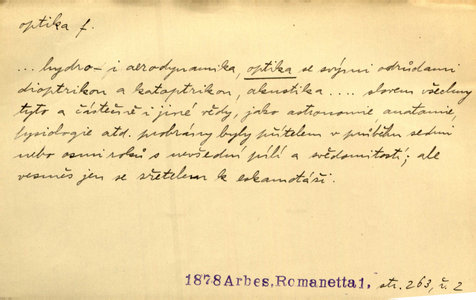 optika f.
... hydro- i aerodynamika, optika se svými odrůdami
dioptrikou a katoptrikou, akustika .... slovem všechny
tyto a částečně i jiné vědy, jako astronomie, anatomie,
fysiologie atd. probrány byly přítelem v průběhu sedmi
nebo osmi roků s nevšední pílí a svědomitostí; ale
vesměs jen se zřetelem k eskamotáži.
1878 Arbes, Romanetta 1, str. 263, ř. 2